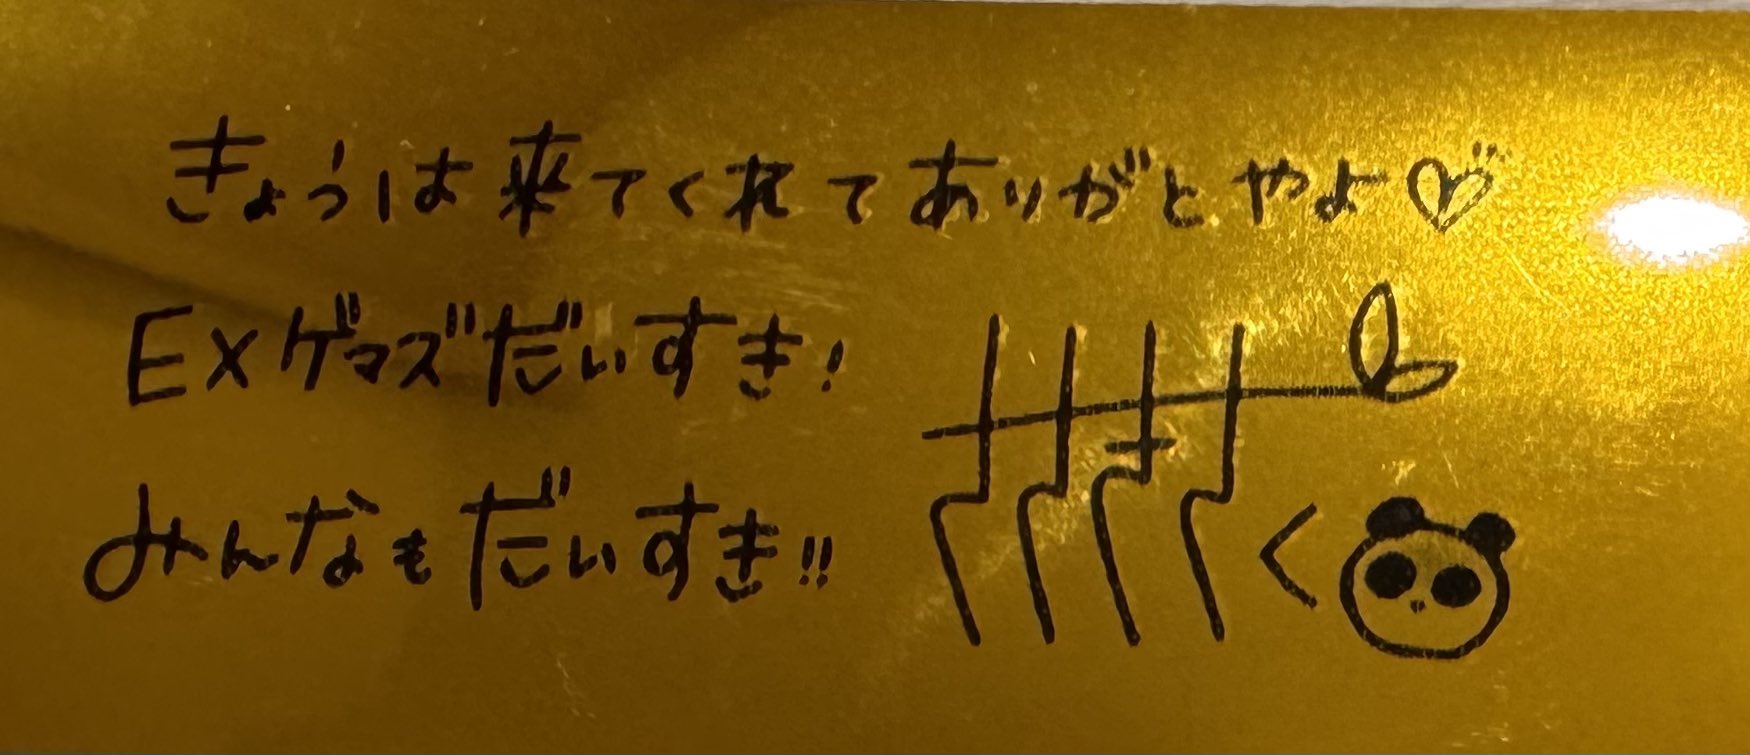 きょうは来てくれてありがとやよ♡
EXゲマズだいすき!
みんなもだいすき!!